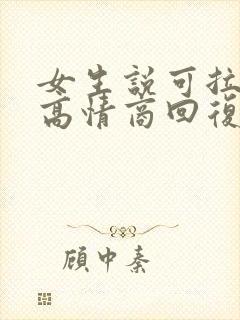 女生説可拉
高情商回復
顧中秦